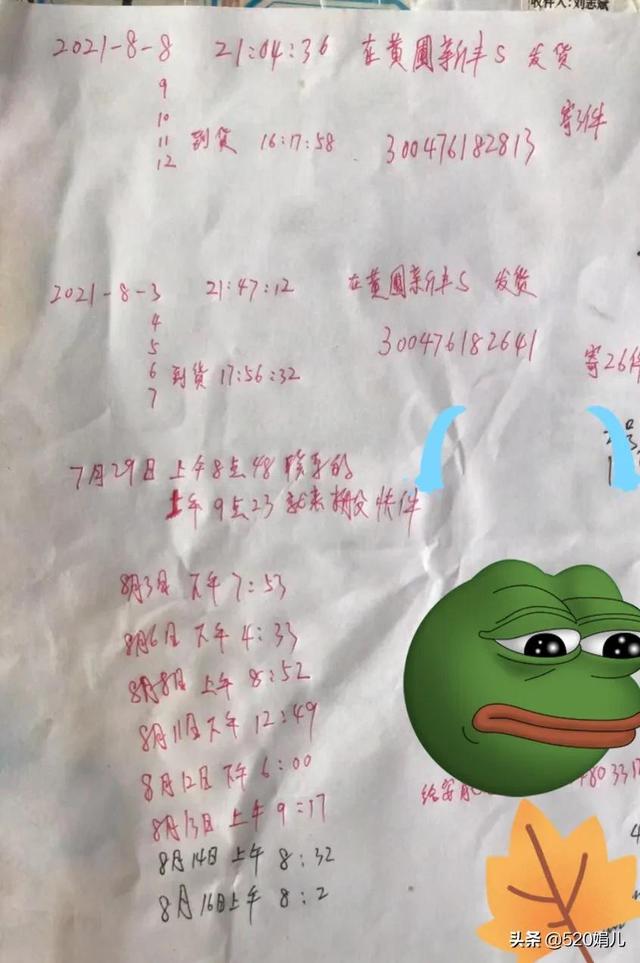 收件人:刘志斌
2021-8-8 21:04:36 在黄圃新丰S 发货
9
10
11 到货 16:17:58 300476182813 寄3件
12
2021-8-3 21:47:12 在黄圃新丰S 发货
4
5 300476182641
6 到货 17:56:32 寄26件
7
7月29日 上午8点48
上午9点23 快件
8月3日 下午7:53
8月6日 下午4:33
8月8日 上午8:52
8月11日下午12:49
8月12日下午6:00
8月13日上午9:17
8月14日上午8:32
8月16日上午8:2
头条 @520娟儿